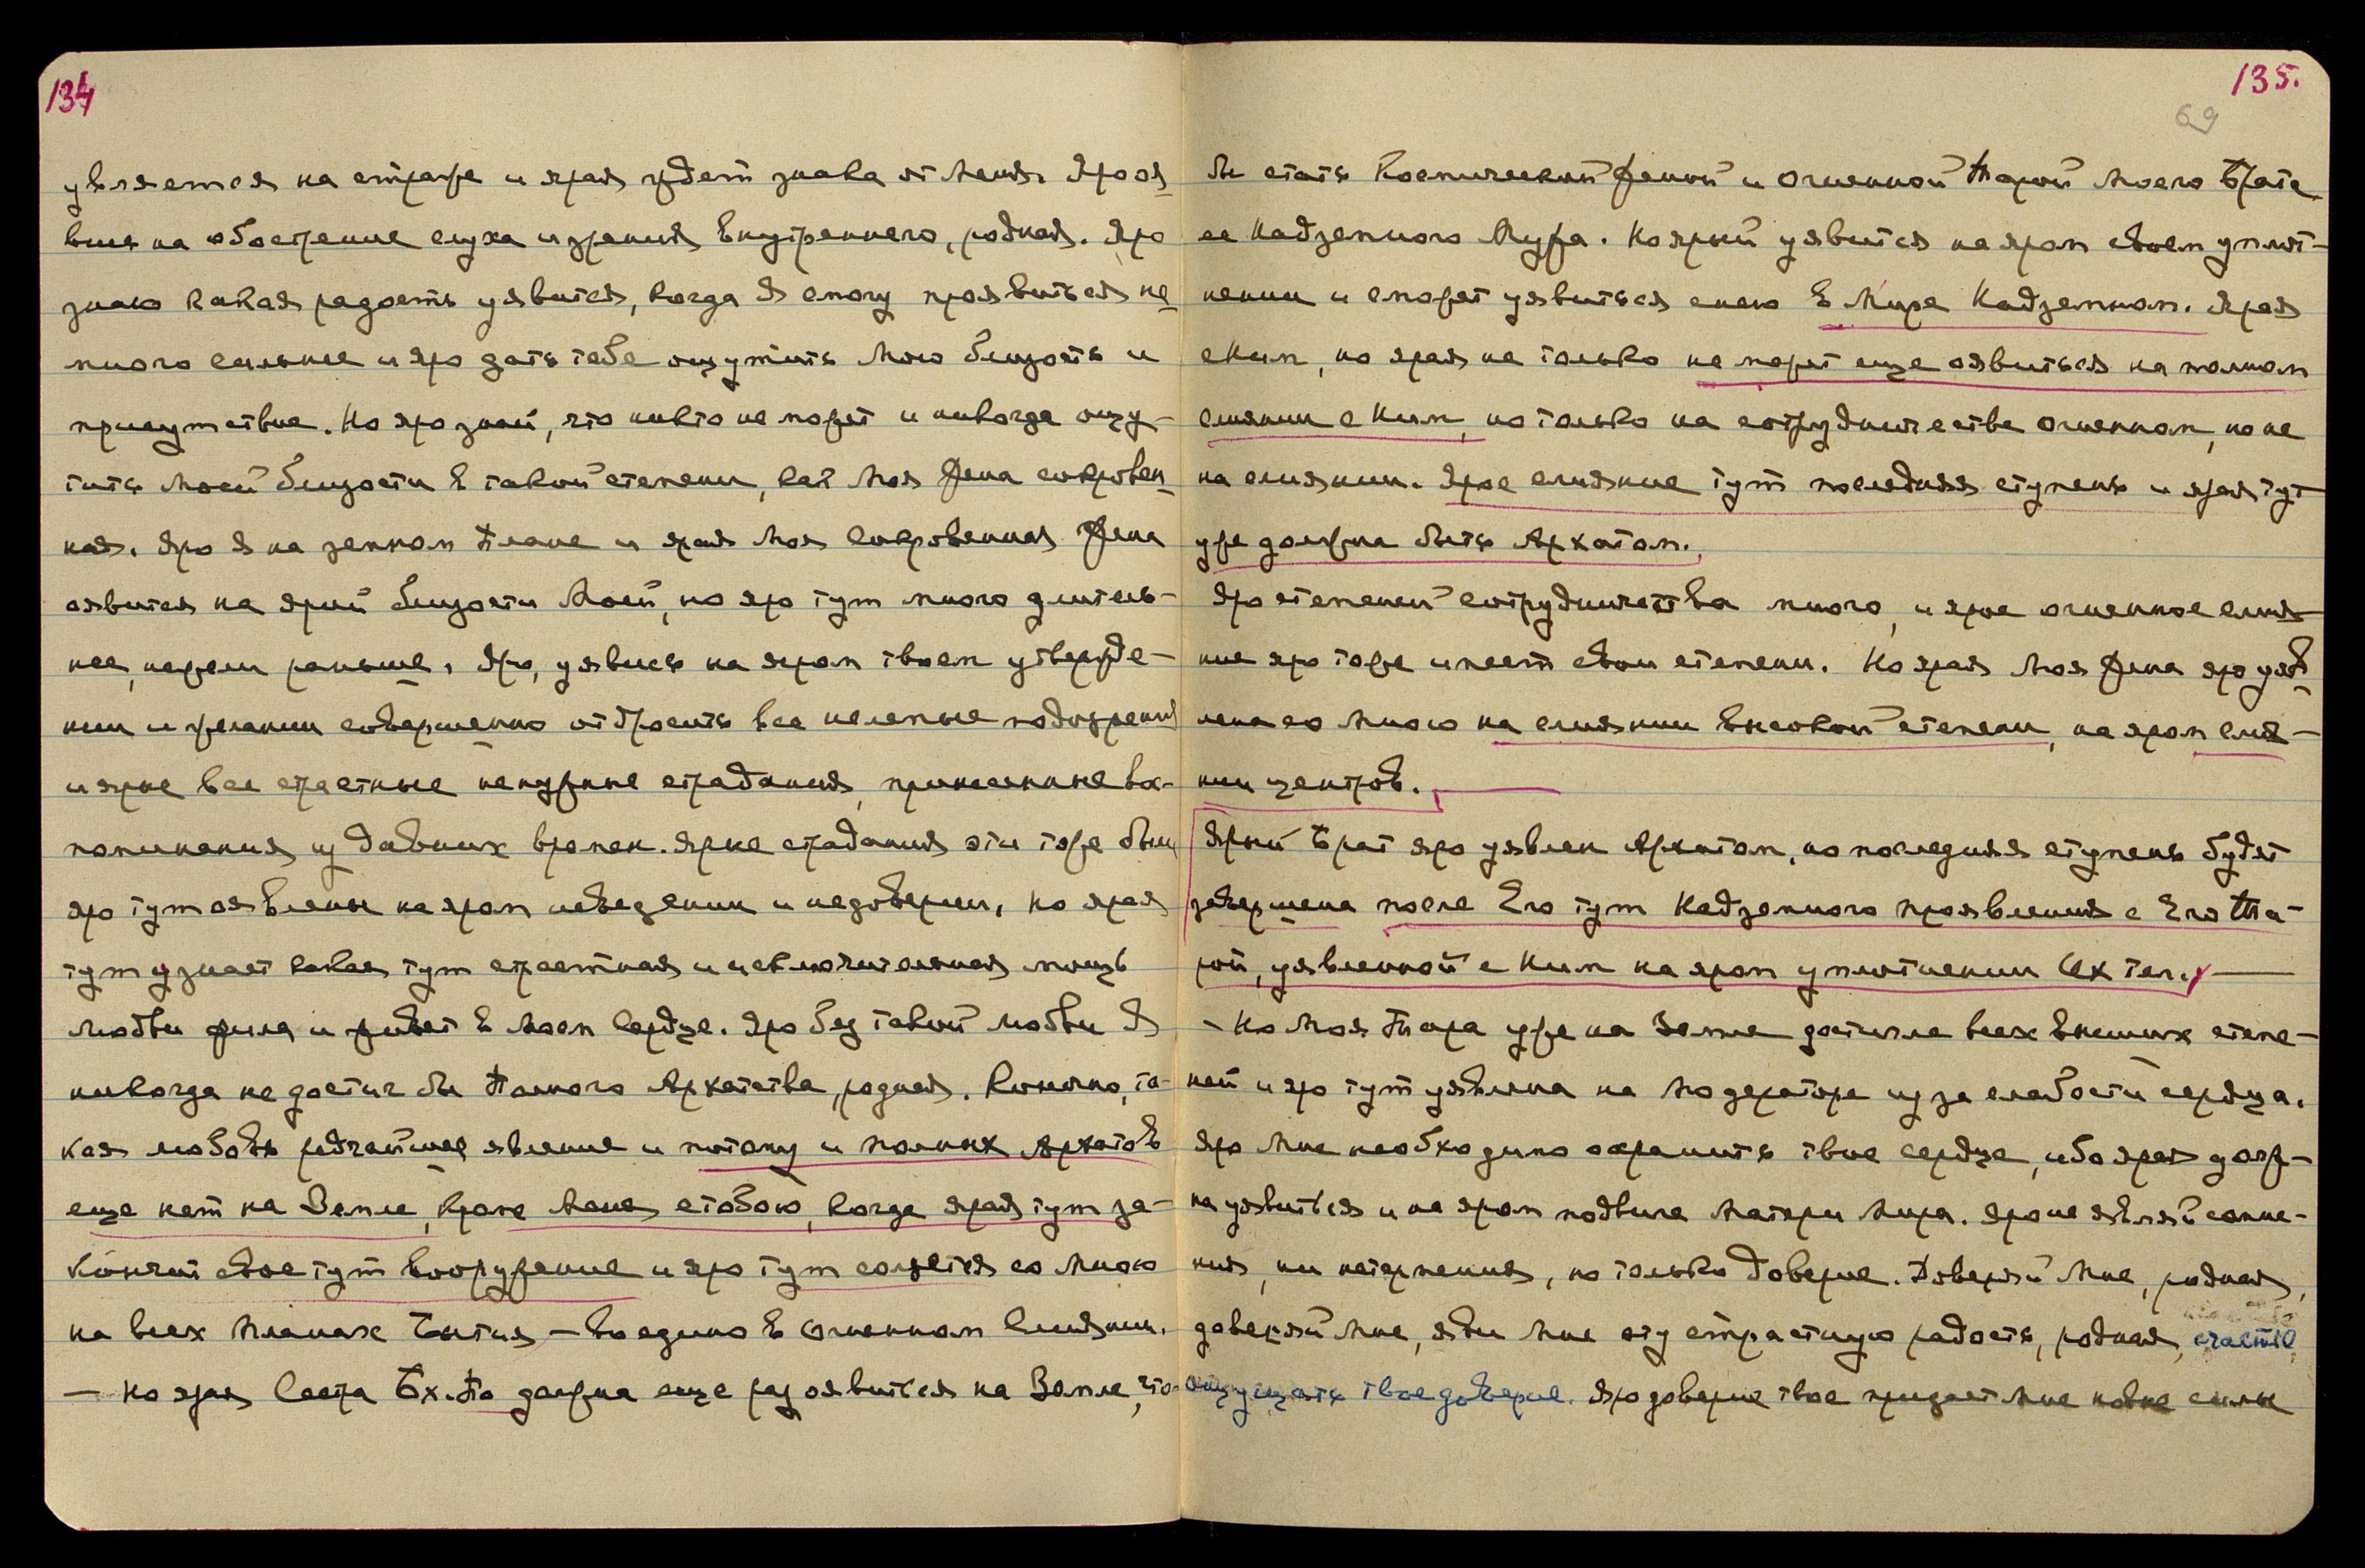 134
является на страже и ярая ждет знака от Меня. Яро я
вись на обострение слуха и зрения внутреннего, родная. Яро
знаю какая радость уявится, когда Я смогу проявиться не
много сильнее и яро дать тебе ощутить Мою близость и
присутствие. Но яро знай, что никто не может и никогда ощу-
тить Моей близости в такой степени, как Моя Жена сокровен
ная. Яро Я на земном Плане и ярая Моя Сокровенная Жена
оявится на ярой близости Моей, но яро тут много длитель-
нее, нежели раньше. Яро, уявись на яром твоем утвержде-
нии и желании совершенно отбросить все нелепые подозрения
и ярые все страстные ненужные страдания, принесенные во-
поминания из давних времен. Ярые страдания эти тоже были
яро тут оявлены на яром неведении и недоверии, но ярая
тут узнает какая тут страстная и исключительная мощь
Любви жила и живет в Моем Сердце. Яро без такой любви Я
никогда не достиг бы Полного Архатства, родная. Конечно, та-
кая любовь редчайшее явление и потому и полных Архатов
еще нет на Земле, кроме Меня с тобою, когда ярая тут за-
кончит свое тут вооружение и яро тут сольется со Мною
на всех Планах Бытия – воедино в огненном Слиянии.
– Но ярая Сестра Бх.По должна еще раз оявиться на Земле, что
135.
69
бы стать Космической Женой и огненной Тарой Моего Брата
ее Надземного Мужа. Но ярый уявится на яром своем уплот-
нении и сможет уявиться с нею в Мире Надземном. Ярая
с Ним, но ярая не только не может еще оявиться на полном
слиянии с Ним, но только на сотрудничестве огненном, но не
на слиянии. Ярое слияние тут последняя ступень и ярая тут
уже должна быть Архатом.
Яро степеней сотрудничества много, и ярое огненное слия-
ние яро тоже имеет свои степени. Но ярая Моя Жена яро уяв
лена со Мною на слиянии высокой степени, на яром слия-
нии центров.
Ярый Брат яро уявлен Архатом, но последняя ступень будет
завершена после Его тут Надземного проявления с Его Та-
рой, уявленной с Ним на яром уплотнении Их тел.
– Но Моя Тара уже на Земле достигла всех высших степе-
ней и яро тут уявлена на Модераторе из за слабости сердца.
Яро Мне необходимо охранить твое сердце, ибо ярая долж-
на уявиться и на яром подвиге Матери Мира. Яро не являй сомне-
ния, ни нетерпения, но только доверие. Доверяй Мне, родная,
доверяй Мне, яви Мне эту страстную радость, родная, счастье
ощущать твое доверие. Яро доверие твое придает Мне новые силы